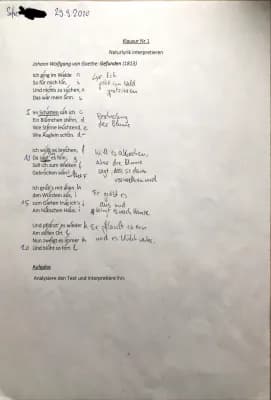 29.9.2020
Klausur Nr.1
Naturlyrik interpretieren
Johann Wolfgang von Goethe: Gefunden (1813)
Ich ging im Walde a Lyr. Ich
So für mich hin, b geht im Wald
Und nichts zu suchen, c spazieren
Das war mein Sinn. b
5 Im Schatten sah ich Beschreibung
Ein Blümchen stehn, d der Blume
Wie Sterne leuchtend, e
Wie Äuglein schön. d
Ich wollt es brechen, f Will es abbrechen,
10 Da sagt es fein: g aber die Blume
Soll ich zum Welken sagt, dass sie dann
Gebrochen sein? verwelken wird
Ich grub's mit allen h Er gräbt es
Den Würzlein aus, i aus und
15 Zum Garten trug ich's bringt es nach Hause.
Am hübschen Haus. i
Und pflanzt' es wieder k Er pflanzt es ein
Am stillen Ort; l und es blüht weiter.
Nun zweigt es immer k
20 Und blüht so fort. l
Aufgabe
Analysiere den Text und interpretiere ihn.